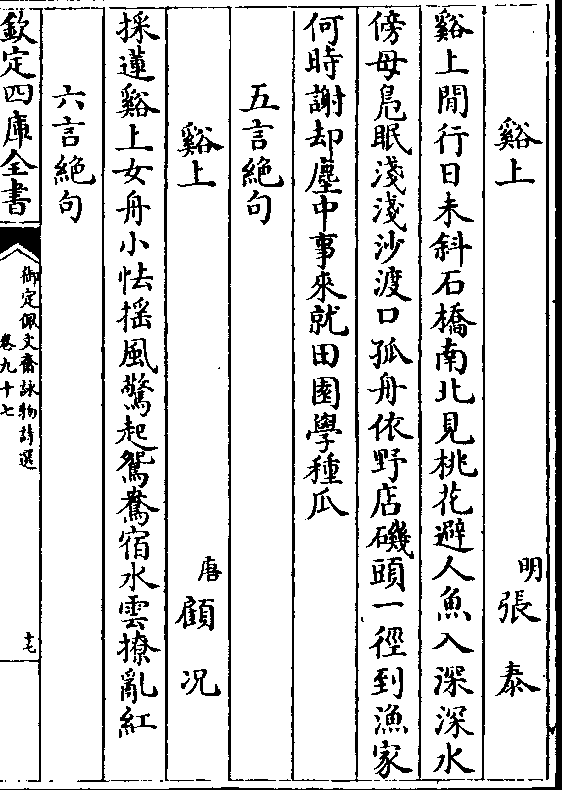 谿上　明 張泰
谿上閒行日未斜石橋南北見桃花避人魚入深深水
傍母鳧眠淺淺沙渡口孤舟依野店磯頭一徑到漁家
何時謝却塵中事來就田園學種瓜
五言絶句
谿上　唐 顧况
採蓮谿上女舟小怯揺風驚起鴛鴦宿水雲撩亂紅
六言絶句
欽定四庫全書
御定佩文齋詠物詩選
卷九十七
十七